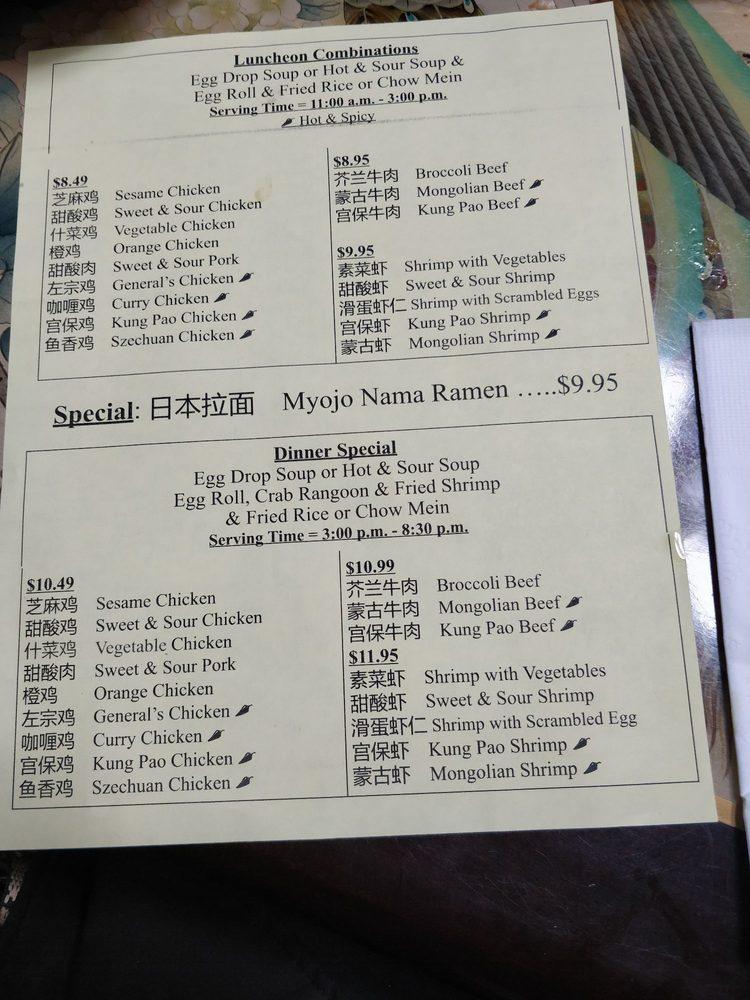 Luncheon Combinations
Egg Drop Soup or Hot & Sour Soup &
Egg Roll & Fried Rice or Chow Mein
Serving Time = 11:00 a.m. - 3:00 p.m.
Hot & Spicy
$8.49
芝麻鸡 Sesame Chicken
甜酸鸡 Sweet & Sour Chicken
什菜鸡 Vegetable Chicken
橙鸡 Orange Chicken
甜酸肉 Sweet & Sour Pork
左宗鸡 General's Chicken
咖喱鸡 Curry Chicken
宫保鸡 Kung Pao Chicken
鱼香鸡 Szechuan Chicken
$8.95
芥兰牛肉 Broccoli Beef
蒙古牛肉 Mongolian Beef
宫保牛肉 Kung Pao Beef
$9.95
素菜虾 Shrimp with Vegetables
甜酸虾 Sweet & Sour Shrimp
滑蛋虾仁 Shrimp with Scrambled Eggs
宫保虾 Kung Pao Shrimp
蒙古虾 Mongolian Shrimp
Special: 日本拉面 Myojo Nama Ramen …..$9.95
Dinner Special
Egg Drop Soup or Hot & Sour Soup
Egg Roll, Crab Rangoon & Fried Shrimp
& Fried Rice or Chow Mein
Serving Time = 3:00 p.m. - 8:30 p.m.
$10.49
芝麻鸡 Sesame Chicken
甜酸鸡 Sweet & Sour Chicken
什菜鸡 Vegetable Chicken
甜酸肉 Sweet & Sour Pork
橙鸡 Orange Chicken
左宗鸡 General's Chicken
咖喱鸡 Curry Chicken
宫保鸡 Kung Pao Chicken
鱼香鸡 Szechuan Chicken
$10.99
芥兰牛肉 Broccoli Beef
蒙古牛肉 Mongolian Beef
宫保牛肉 Kung Pao Beef
$11.95
素菜虾 Shrimp with Vegetables
甜酸虾 Sweet & Sour Shrimp
滑蛋虾仁 Shrimp with Scrambled Egg
宫保虾 Kung Pao Shrimp
蒙古虾 Mongolian Shrimp